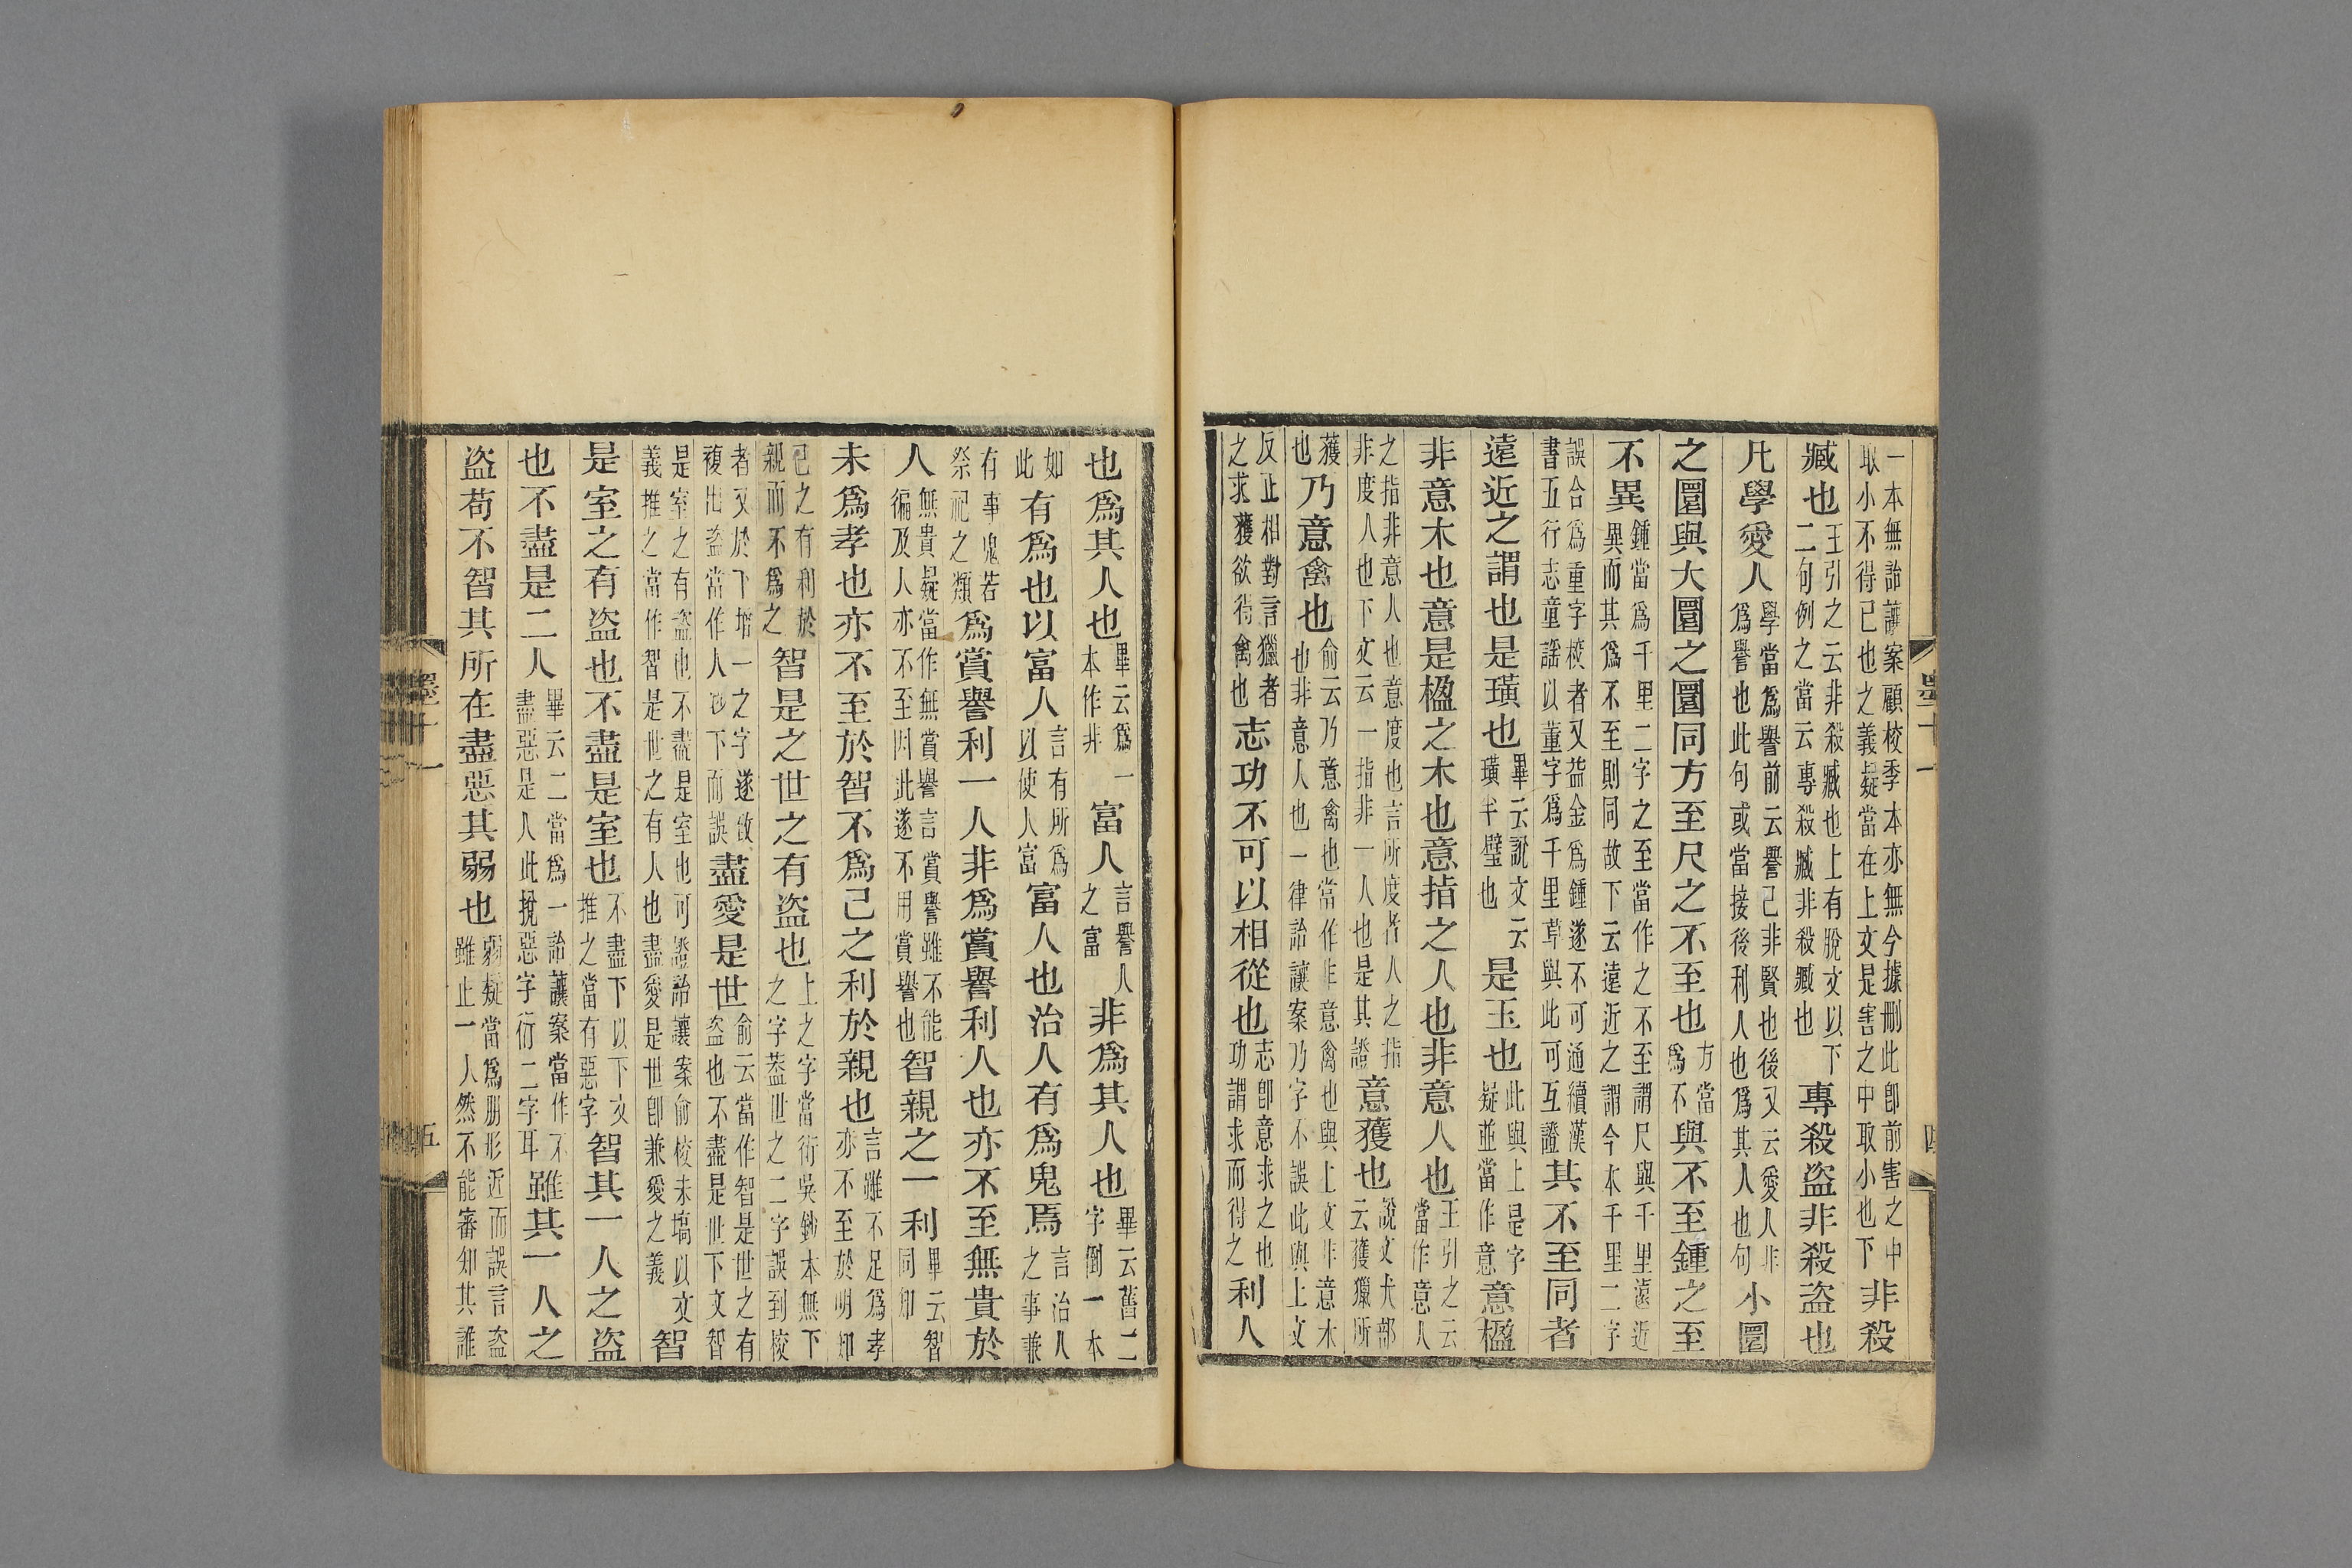 一本無詒讓案顧校季本亦無今據刪此卽前害之中
取小不得已也之義疑當在上文是害之中取小也下
非殺
臧也
王引之云非殺臧也上有脫文以下
二句例之當云專殺臧非殺臧也
專殺盜非殺盜也
凡學愛人
學當爲譽前云譽己非賢也後又云愛人非
爲譽也此句或當接後利人也爲其人也句
小圜
之圜與大圜之圜同方至尺之不至也
方當
爲不
與不至鍾之至
不異
鍾當爲千里二字之至當作之不至謂尺與千里遠近
異而其爲不至則同故下云遠近之謂今本千里二字
誤合爲重字校者又益金爲鍾遂不可通續漢
書五行志童謠以董字爲千里草與此可互證
其不至同者
遠近之謂也是璜也
畢云說文云
璜半璧也
是玉也
此與上是字
疑並當作意
意楹
非意木也意是楹之木也意指之人也非意人也
王引之云
當作意人
之指非意人也意度也言所度者人之指
非度人也下文云一指非一人也是其證
意獲也
說文犬部
云獲獵所
獲
也
乃意禽也
俞云乃意禽也當作非意禽也與上文非意木
也非意人也一律詒讓案乃字不誤此與上文
反正相對言獵者
之求獲欲得禽也
志功不可以相從也
志卽意求之也
功謂求而得之
利人
墨十一
四
也爲其人也
畢云爲一
本作非
富人
言譽人
之富
非爲其人也
畢云舊二
字倒一本
如
此
有爲也以富人
言有所爲
以使人富
富人也治人有爲鬼焉
言治人
之事兼
有事鬼若
祭祀之類
爲賞譽利一人非爲賞譽利人也亦不至無貴於
人
無貴疑當作無賞譽言賞譽雖不能
徧及人亦不至因此遂不用賞譽也
智親之一利
畢云智
同知
未爲孝也亦不至於智不爲己之利於親也
言雖不足爲孝
亦不至於明知
己之有利於
親而不爲之
智是之世之有盜也
上之字當衍吳鈔本無下
之字葢世之二字誤到校
者又於下增一之字遂致
複出盜當作人抄下而誤
盡愛是世
俞云當作智是世之有
盜也不盡是世下文智
是室之有盜也不盡是室也可證詒讓案俞校未塙以文
義推之當作智是世之有人也盡愛是世卽兼愛之義
智
是室之有盜也不盡是室也
不盡下以下文
推之當有惡字
智其一人之盜
也不盡是二人
畢云二當爲一詒讓案當作不
盡惡是人此挩惡字衍二字耳
雖其一人之
盜苟不智其所在盡惡其弱也
弱疑當爲朋形近而誤言盜
雖止一人然不能審知其誰
墨十一
五